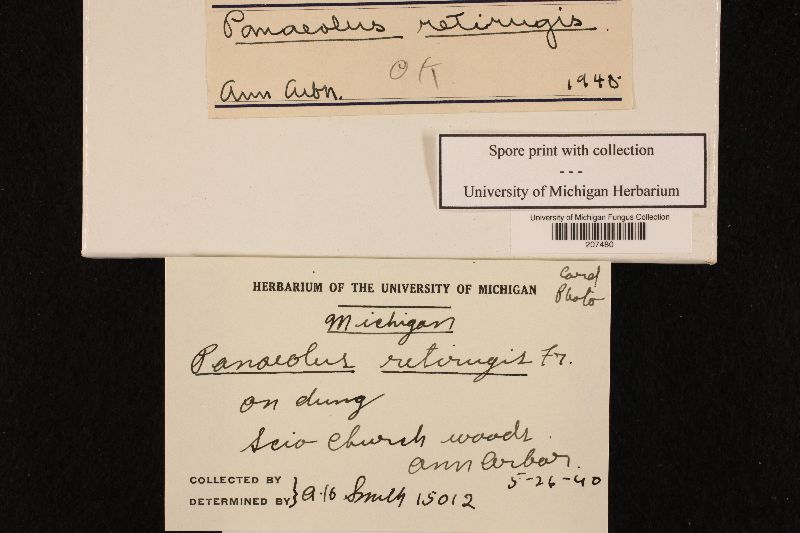 Panaeolus retirugis.
OK
Ann Arbr. 1940
Spore print with collection
---
University of Michigan Herbarium
University of Michigan Fungus Collection
207480
HERBARIUM OF THE UNIVERSITY OF MICHIGAN
Card
Photo
Michigan
Panaeolus retirugis Fr.
on dung
Scio Church woods.
Ann Arbor.
5-26-40
COLLECTED BY
DETERMINED BY } A.H. Smith 15012